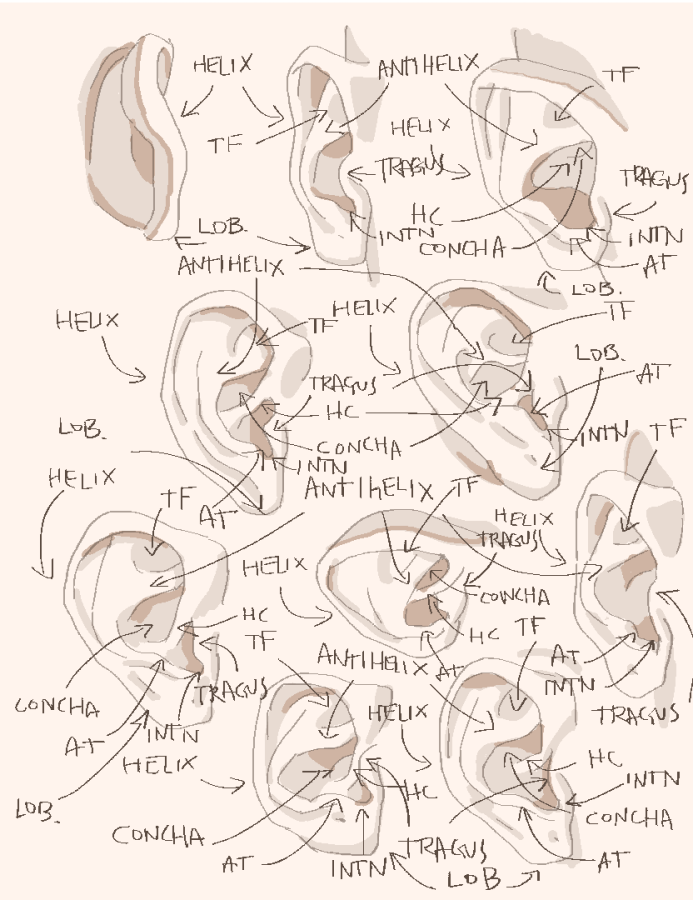 HELIX
ANTIHELIX
TF
TF
HELIX
TRAGUS
TRAGUS
HC
LOB.
INTN
CONCHA
INTN
AT
ANTIHELIX
LOB.
HELIX
TF
HELIX
TF
LOB.
TRAGUS
AT
HC
LOB.
CONCHA
INTN
TF
INTN
HELIX
ANTIHELIX
TF
TF
AT
HELIX
TRAGUS
HELIX
CONCHA
HC
TF
HC
TF
ANTIHELIX
AT
AT
INTN
TRAGUS
CONCHA
TRAGUS
HELIX
AT
INTN
HELIX
HC
HC
INTN
LOB.
CONCHA
CONCHA
AT
TRAGUS
AT
INTN
LOB